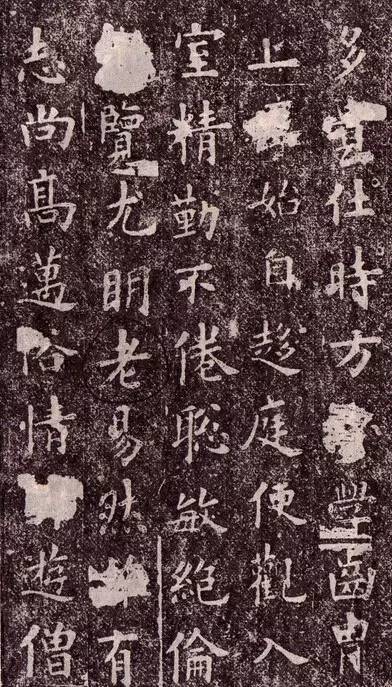 多仕時方學齒冑
上始自趍庭便觀入
室精勤不倦聰敏絕倫
覽尤明老易然有
志尚髙邁俗情遊僧